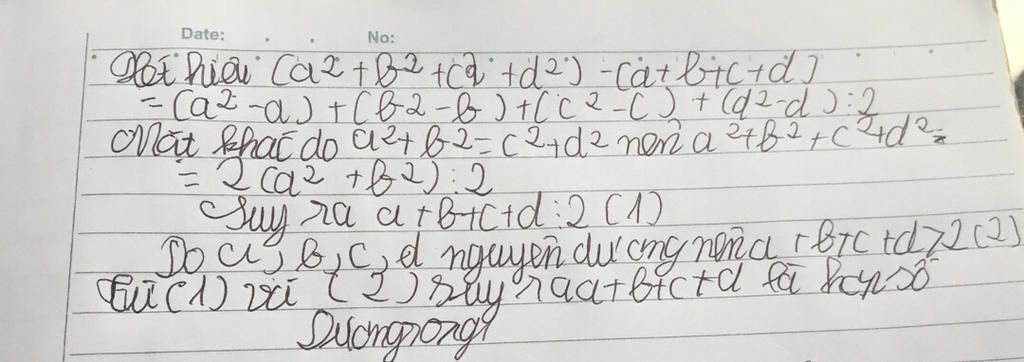 Date: . . No:
Xét hiệu (a² + b² + c² + d²) - (a + b + c + d)
= (a² - a) + (b² - b) + (c² - c) + (d² - d) : 2
Mặt khác do a² + b² = c² + d² nên a² + b² + c² + d² =
= 2 (a² + b²) : 2
Suy ra a + b + c + d : 2 (1)
Do a, b, c, d nguyên dương nên a + b + c + d > 2 (2)
Từ (1) và (2) suy ra a + b + c + d là hợp số